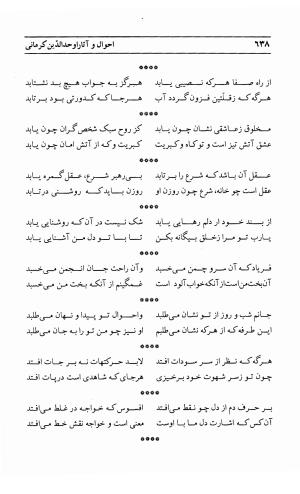 ۶۳۸
احوال و آثار اوحدالدّین کرمانی
****
از راه صفا هر که نصیبی یابد    هرگز به جواب هیچ بد نشتابد
هرگه که ز قلّتین فزون گردد آب    هرجا که کدورتی بود برتابد
****
مخلوق ز عاشقی نشان چون یابد    کز روح سبک شخص گران چون یابد
عشق آتش تیز است و تو کاه و کبریت    کبریت و که از آتش امان چون یابد
****
عقل آن باشد که شرع را برتابد    بی‌رهبر شرع، عقل گمره یابد
عقل است چو خانه، شرع چون روزن او    روزن باید که روشنی درتابد
****
از بند خود ار دلم رهایی یابد    شک نیست در آن که روشنایی یابد
یارب تو مرا ز خلق بیگانه بکن    تا با تو دل من آشنایی یابد
****
فریاد که آن سرو چمن می‌خسبد    وآن راحت جان انجمن می‌خسبد
آن بخت من است از آنکه خواب‌آلود است    غمگینم از آنکه بخت من می‌خسبد
****
جانم شب و روز از تو نشان می‌طلبد    واحوال تو پیدا و نهان می‌طلبد
این طرفه که از هر که نشان می‌طلبم    او نیز چو من تو را به جان می‌طلبد
****
هرگه که نظر از سر سودات افتد    لابد حرکتهات نه بر جات افتد
چون تو ز سر شهوت خود برخیزی    هرجای که شاهدی است درپات افتد
****
بر حرف دم از دل چو نقط می‌افتد    افسوس که خواجه در غلط می‌افتد
آن کس که اشارت دل ما با اوست    معنی است و خواجه نقش خط می‌افتد
****